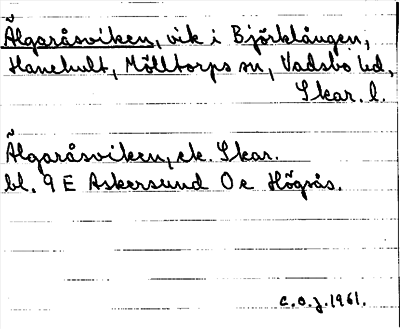 Älgaråsviken, vik i Björklången,
Hanehult, Mölltorps sn, Vadsbo hd,
Skar. l.
Älgaråsviken, ek. Skar.
bl. 9 E Askersund O e Högsås.
C.O.J. 1961.